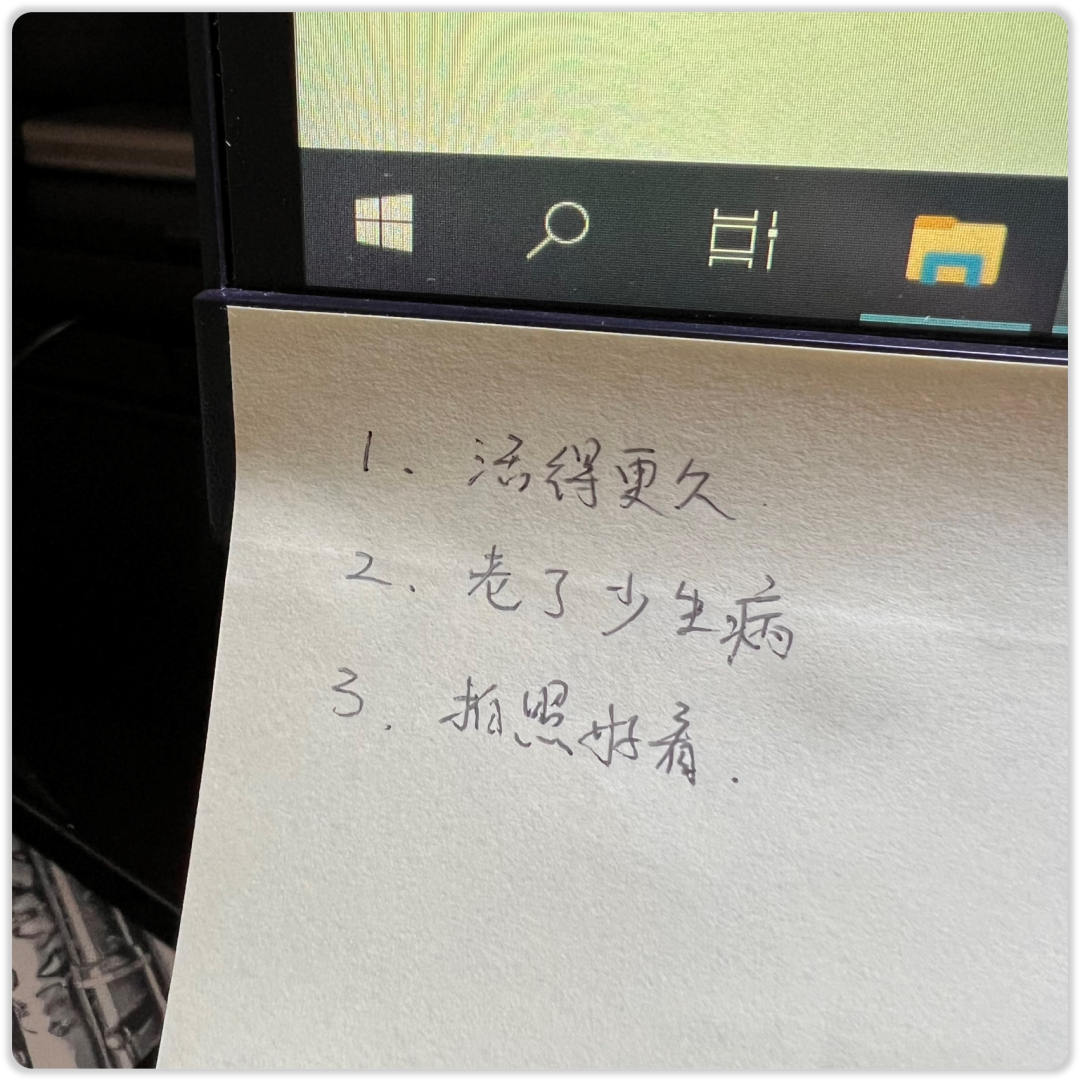 1、活得更久.
2、老了少生病
3、拍照好看.